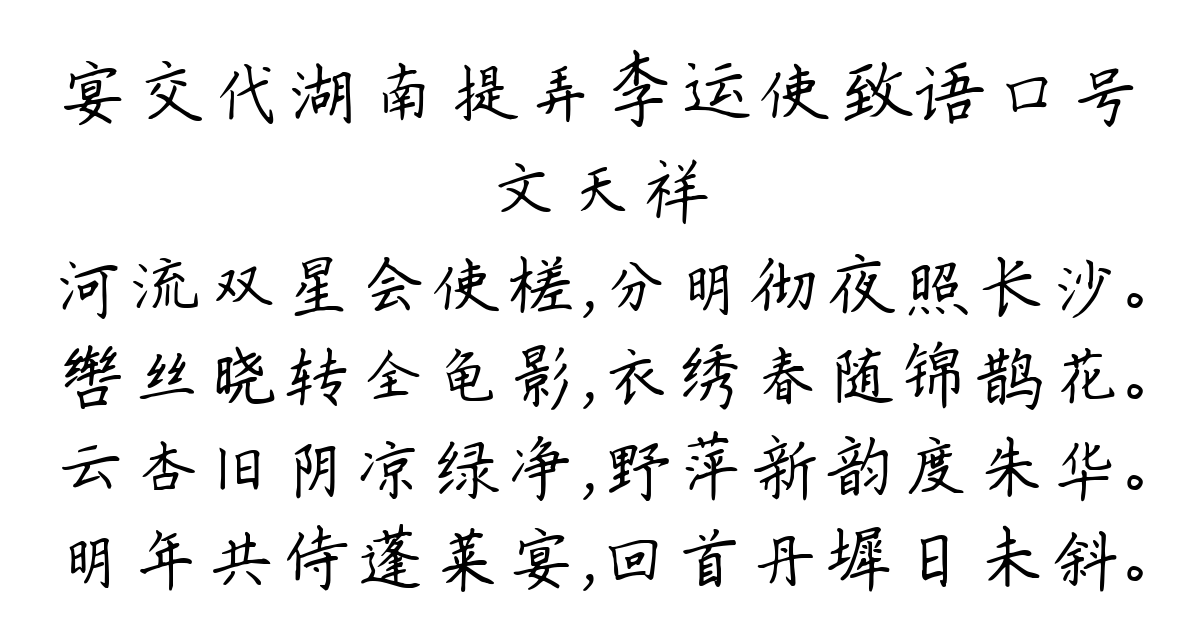 宴交代湖南提弄李运使致语口号
文天祥
河流双星会使槎,分明彻夜照长沙。
辔丝晓转全龟影,衣绣春随锦鹊花。
云杏旧阴凉绿净,野萍新韵度朱华。
明年共侍蓬莱宴,回首丹墀日未斜。